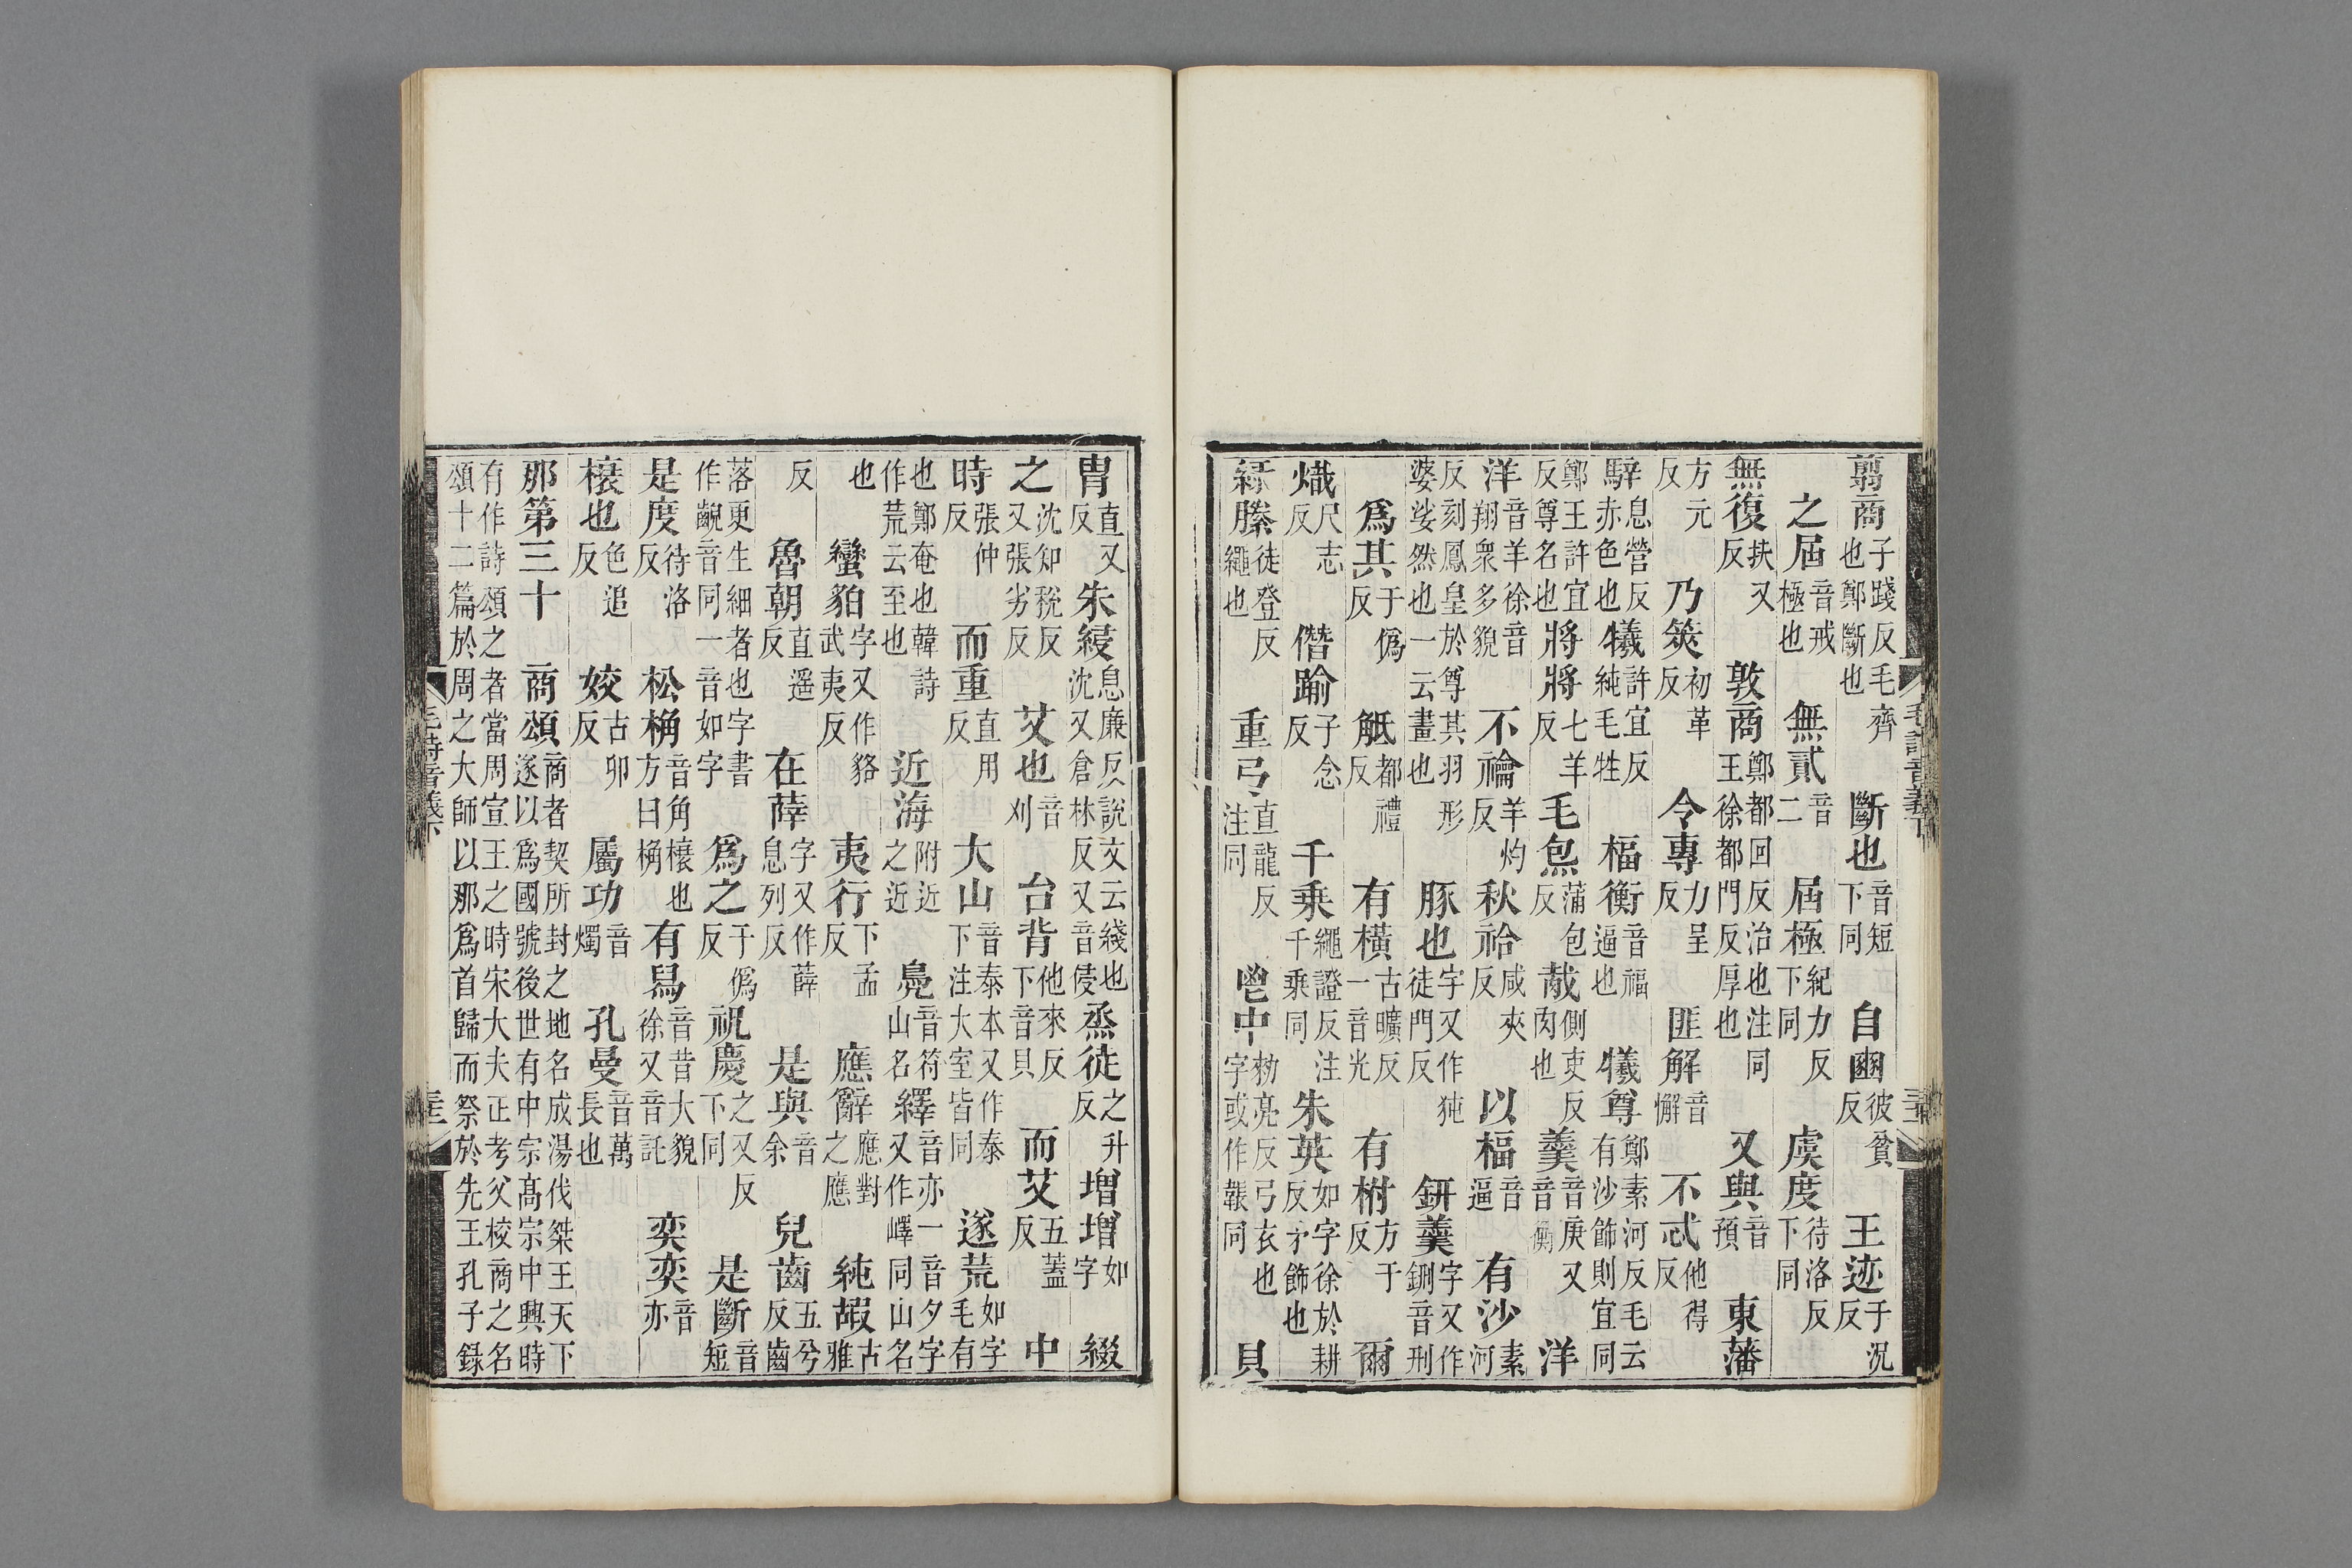 翦商子踐反毛齊也鄭斷也斷也音短下同自豳彼貧反王迹于況反
之屆音戒極也無貳音二屆極紀力反下同虞度待洛反下同
無復扶又反敦商鄭都回反治也注同王徐都門反厚也又與音預東藩
方元反乃筴初革反令專力呈反匪解音懈不忒他得反
騂息營反赤色也犧許宜反純毛牲楅衡音福逼也犧尊鄭素河反毛云有沙飾則宜同
鄭王許宜反尊名也將將七羊反毛炰蒲包反胾側吏反肉也羹音庚又音衡洋
洋音羊徐音翔衆多貌不禴羊灼反秋祫咸夾反以楅音逼有沙素河
反刻鳳皇於尊其羽形婆娑然也一云畫也豚也字又作㹠徒門反鈃羹字又作鉶音刑
爲其于僞反觝都禮反有橫古曠反一音光有柎方于反爾
熾尺志反僭踰子念反千乘繩證反注千乘同朱英如字徐於耕反矛飾也
綠縢徒登反繩也重弓直龍反注同鬯中敕亮反弓衣也字或作韔同貝
冑直又反朱綅息廉反說文云綫也沈又倉林反又音侵烝徒之升反增增如字綴
之沈知稅反又張劣反艾也音刈台背他來反下音貝而艾五蓋反中
時張仲反而重直用反大山音泰本又作泰下注大室皆同遂荒如字毛有
也鄭奄也韓詩作荒云至也近海附近之近鳧音符山名繹音亦一音夕字又作嶧同山名
也蠻貊字又作貉武夷反夷行下孟反應辭應對之應純嘏古雅
反魯朝直遥反在薛字又作薛息列反是與音余兒齒五兮反齒
落更生細者也字書作齯音同一音如字爲之于僞反祝慶之又反下同是斷音短
是度待洛反松桷音角榱也方曰桷有舃音昔大貌徐又音託奕奕音亦
榱也色追反姣古卯反屬功音燭孔曼音萬長也
那第三十商頌商者契所封之地名成湯伐桀王天下遂以爲國號後世有中宗高宗中興時
有作詩頌之者當周宣王之時宋大夫正考父校商之名頌十二篇於周之大師以那爲首歸而祭於先王孔子錄
毛詩音義下